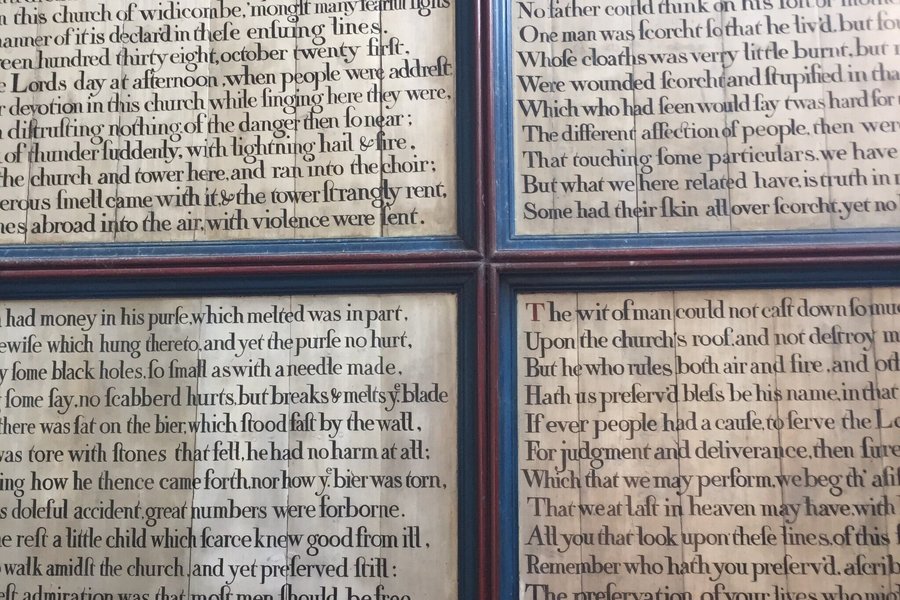 in this church of widicombe,'mongſt many fearful ſights
manner of it is declar'd in theſe enſuing lines.
hundred thirty eight,october twenty firſt,
Lords day at afternoon,when people were addreſt
devotion in this church while ſinging here they were,
diſtruſting nothing of the danger then ſo near;
of thunder ſuddenly, with lightning hail & fire,
the church and tower here,and ran into the choir;
ſmell came with it,& the tower ſtrangly rent,
abroad into the air,with violence were ſent.
No father could think on his ſon or
One man was ſcorcht ſo that he liv'd,but
Whoſe cloaths was very little burnt,but
Were wounded ſcorcht and ſtupified in
Which who had ſeen would ſay twas hard for
The different affection of people,then were
That touching ſome particulars,we have
But what we here related have,is truth in
Some had their ſkin all over ſcorcht,yet no
had money in his purſe,which melted was in part,
which hung thereto,and yet the purſe no hurt,
ſome black holes,ſo ſmall as with a needle made,
ſome ſay,no ſcabberd hurts,but breaks & melts yᵉ blade
there was ſat on the bier,which ſtood faſt by the wall,
was tore with ſtones that fell,he had no harm at all;
how he thence came forth,nor how yᵉ bier was torn,
doleful accident,great numbers were forborne.
reſt a little child which ſcarce knew good from ill,
walk amidſt the church,and yet preſerved ſtill:
admiration was that moſt men ſhould be free
The wit of man could not caſt down ſo
Upon the church's roof,and not deſtroy
But he who rules both air and fire,and
Hath us preſerv'd bleſs be his name,in that
If ever people had a cauſe,to ſerve the
For judgment and deliverance,then
Which that we may perform,we beg th'
That we at laſt in heaven may have,with
All you that look upon theſe lines,of this
Remember who hath you preſerv'd,
The preſervation of your lives who